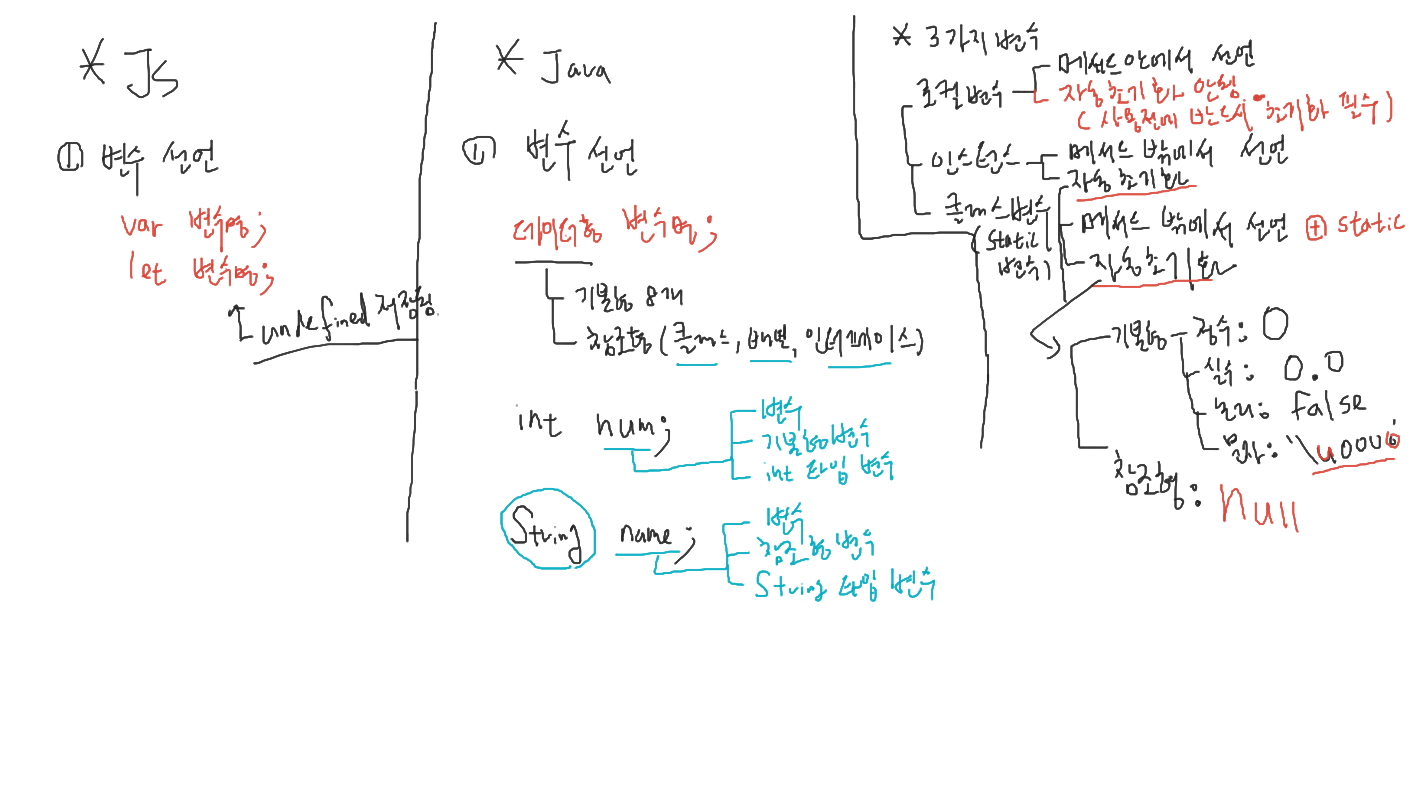 * JS
① 변수 선언
var 변수명;
let 변수명;
undefined 저장됨.
* Java
① 변수 선언
데이터형 변수명;
기본형 8개
참조형 (클래스, 배열, 인터페이스)
int num;
변수
기본형변수
int 타입 변수
String name;
변수
참조형 변수
String 타입 변수
* 3가지 변수
로컬변수
메서드안에서 선언
자동초기화 안됨
(사용전에 반드시 초기화 필수)
인스턴스
메서드 밖에서 선언
자동초기화
클래스변수
(static
변수)
메서드 밖에서 선언 ⊕ static
자동초기화
기본형
정수: 0
실수: 0.0
논리: false
문자: '\u0000'
참조형: null